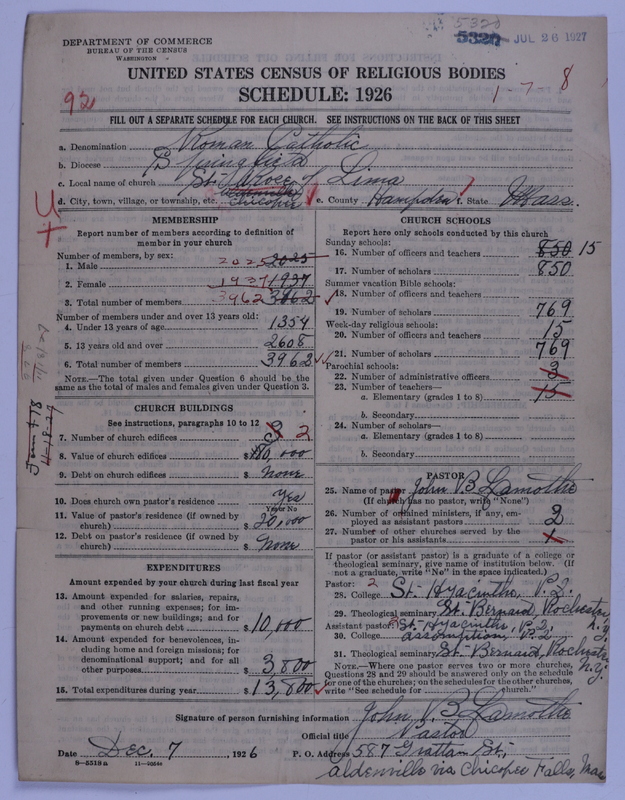 5320
5320 JUL 26 1927
DEPARTMENT OF COMMERCE
BUREAU OF THE CENSUS
WASHINGTON
UNITED STATES CENSUS OF RELIGIOUS BODIES
SCHEDULE: 1926
92
1-7-8
FILL OUT A SEPARATE SCHEDULE FOR EACH CHURCH. SEE INSTRUCTIONS ON THE BACK OF THIS SHEET
a. Denomination Roman Catholic
b. Diocese Springfield
c. Local name of church St. Rose of Lima
d. City, town, village, or township, etc. Chicopee e. County Hampden f. State Mass.
MEMBERSHIP
Report number of members according to definition of
member in your church
Number of members, by sex:
1. Male 2025 2025
2. Female 1937 1937
3. Total number of members 3962 3862
Number of members under and over 13 years old:
4. Under 13 years of age 1354
5. 13 years old and over 2608
6. Total number of members 3962
NOTE.—The total given under Question 6 should be the
same as the total of males and females given under Question 3.
CHURCH BUILDINGS
See instructions, paragraphs 10 to 12
7. Number of church edifices 2
8. Value of church edifices $ 180,000
9. Debt on church edifices $ None
10. Does church own pastor's residence Yes
Yes or No
11. Value of pastor's residence (if owned by
church) $ 20,000
12. Debt on pastor's residence (if owned by
church) $ None
EXPENDITURES
Amount expended by your church during last fiscal year
13. Amount expended for salaries, repairs,
and other running expenses; for im-
provements or new buildings; and for
payments on church debt $ 10,000
14. Amount expended for benevolences, in-
cluding home and foreign missions; for
denominational support; and for all
other purposes $ 3,800
15. Total expenditures during year $ 13,800
CHURCH SCHOOLS
Report here only schools conducted by this church
Sunday schools:
16. Number of officers and teachers 850 15
17. Number of scholars 850
Summer vacation Bible schools:
18. Number of officers and teachers
19. Number of scholars 769
Week-day religious schools:
20. Number of officers and teachers 15
21. Number of scholars 769
Parochial schools:
22. Number of administrative officers 3
23. Number of teachers—
a. Elementary (grades 1 to 8) 15
b. Secondary
24. Number of scholars—
a. Elementary (grades 1 to 8)
b. Secondary
PASTOR
25. Name of pastor John B. Lamothe
(If church has no pastor, write "None")
26. Number of ordained ministers, if any, em-
ployed as assistant pastors 2
27. Number of other churches served by the
pastor or his assistants 1
If pastor (or assistant pastor) is a graduate of a college or
theological seminary, give name of institution below. (If
not a graduate, write "No" in the space indicated.)
Pastor: 2
28. College St. Hyacinthe, P.2.
29. Theological seminary St. Bernard Rochester
N.Y.
Assistant pastor: St. Hyacinthe, P.2.
30. College assomption, P.2
31. Theological seminary St. Bernard, Rochester
N.Y.
NOTE.—Where one pastor serves two or more churches,
Questions 28 and 29 should be answered only on the schedule
for one of the churches; on the schedules for the other churches,
write "See schedule for church."
Signature of person furnishing information John B. Lamothe
Official title Pastor
Date Dec. 7, 1926 P. O. Address 587 Grattan St.
8—5519a
Aldenville via Chicopee Falls, Mass